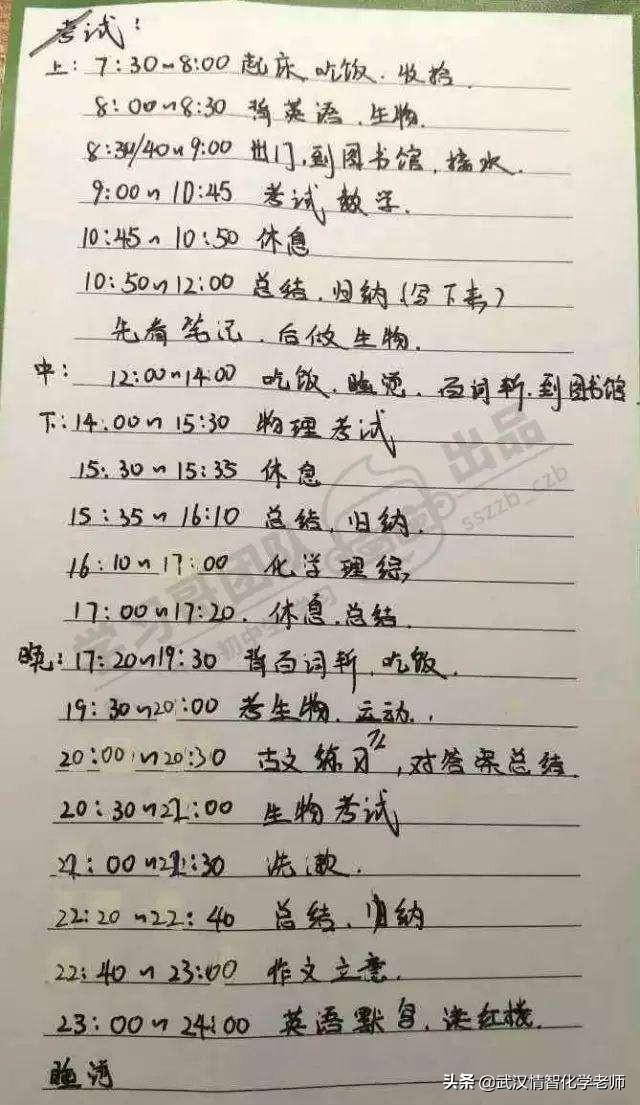 考试：
上：7:30~8:00 起床、吃饭、收拾.
8:00~8:30 背英语、生物.
8:30/40~9:00 出门,到图书馆,接水.
9:00~10:45 考试数学.
10:45~10:50 休息
10:50~12:00 总结、归纳(写下来)
先看笔记、后做生物.
中：12:00~14:00 吃饭、睡觉、百词斩、到图书馆
下：14:00~15:30 物理考试
15:30~15:35 休息
15:35~16:10 总结、归纳.
16:10~17:00 化学理综,
17:00~17:20. 休息.总结.
晚：17:20~19:30 背百词斩、吃饭.
19:30~20:00 考生物、运动.
20:00~20:30 古文练习,对答案总结.
20:30~21:00 生物考试
21:00~21:30 洗漱.
22:20~22:40 总结、归纳
22:40~23:00 作文立意.
23:00~24:00 英语默写、读红楼.
睡觉
学习哥团队 出品
初中生学习
sszzb_czb
头条 @武汉情智化学老师